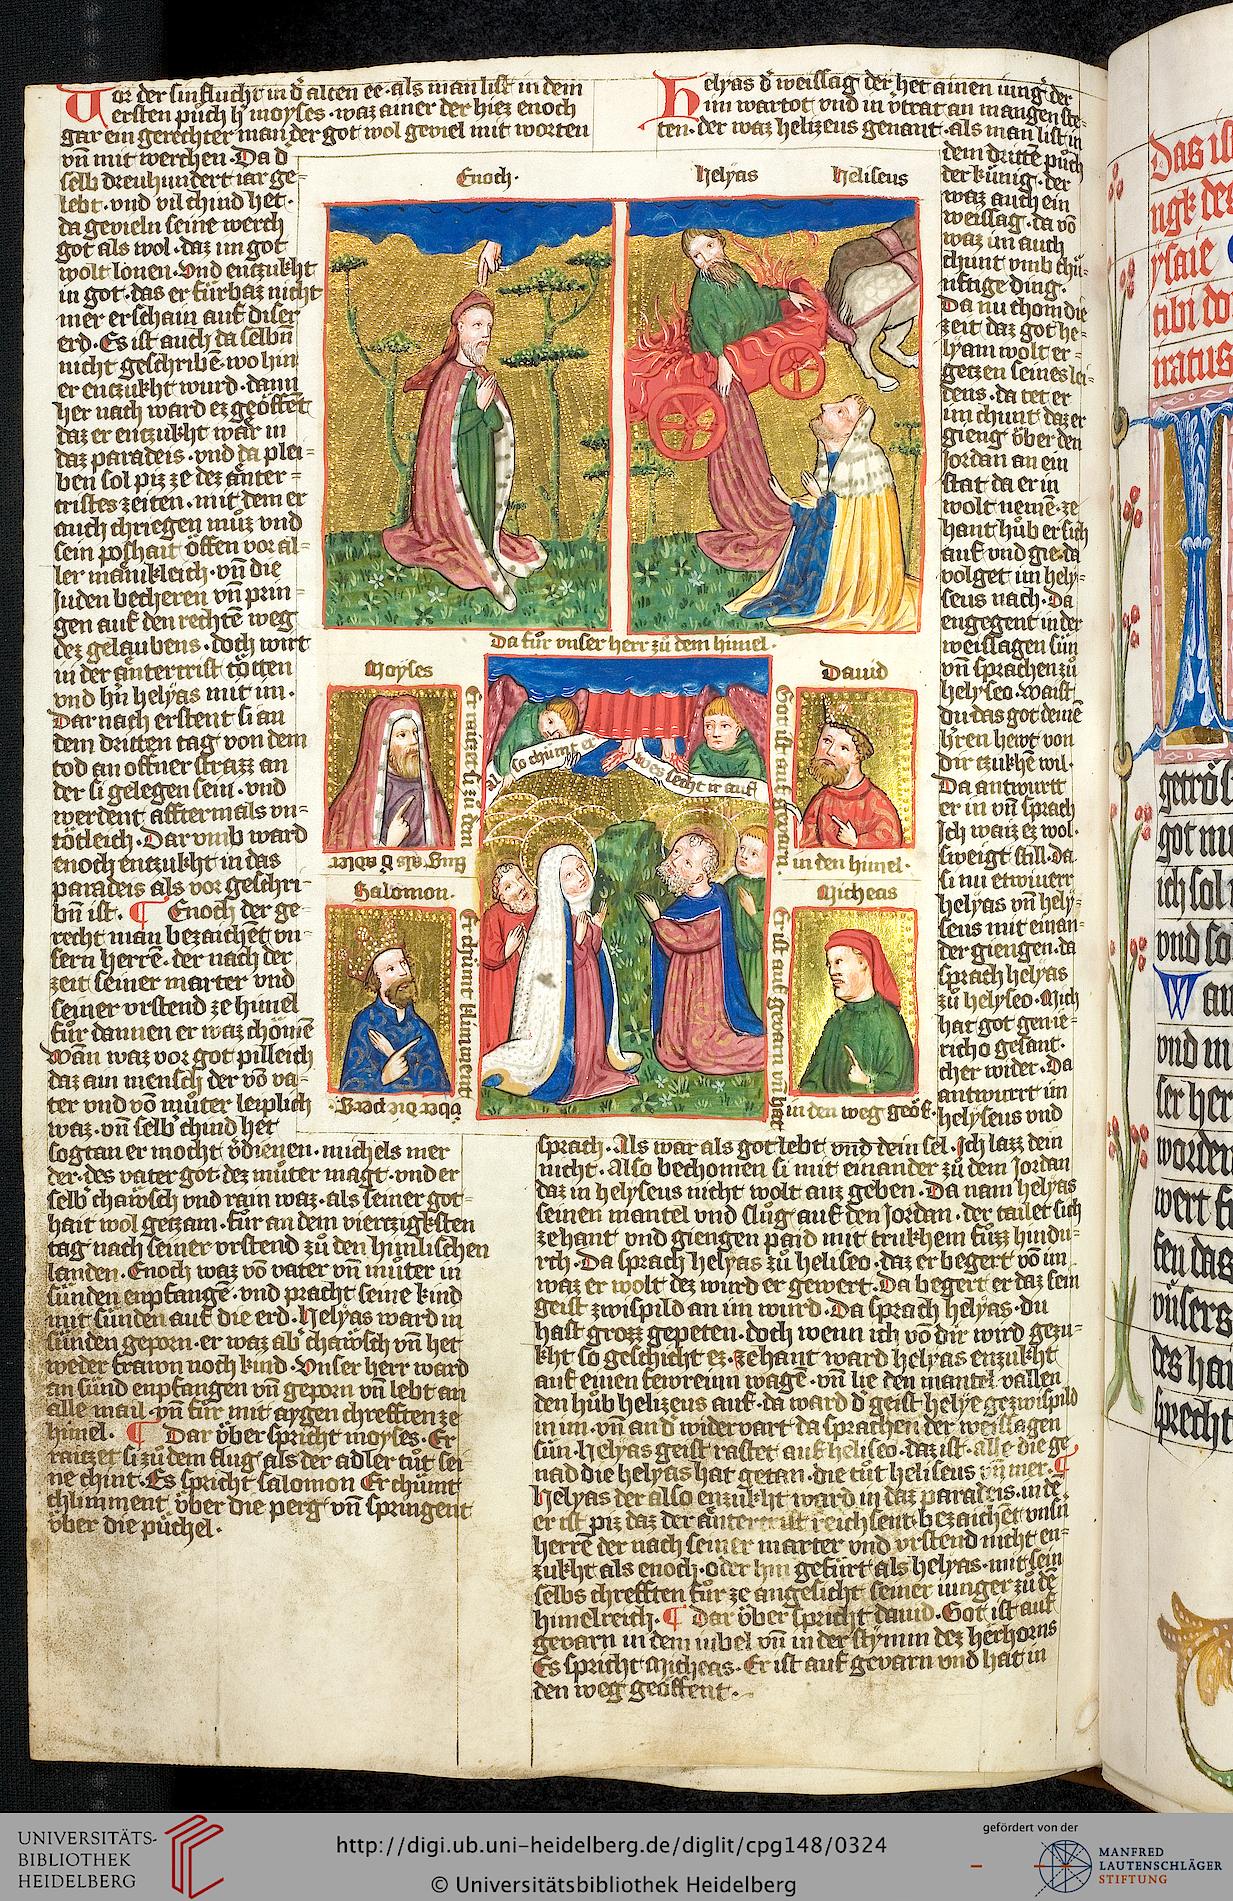 Vor der sinflucht in d̕ alten ee · als man list in dem
ersten půch h̕ moyses · waz ainer der hiez enoch
gar ein gerechter man der got wol geviel mit worten
vn̄ mit werchen · Da d̕
selb dreuhundert iar ge-
lebt · vnd vil chind het ·
da gevieln seine werch
got als wol · daz im got
wolt lonen · Vnd enczukht
in got · das er fürbaz nicht
mer erschain auf diser
erd · Es ist auch da selbn̄
nicht geschribē · wo hin
er enczukht wurd · dann
her nach ward ez geöffēt
daz er enczukht wär in
daz paradeis · vnd da plei-
ben sol piz ze dez anter-
cristes zeiten · mit dem er
auch chriegen müz vnd
sein poshait öffen vor al-
ler mänikleich · vn̄ die
Juden becheren vn̄ prin-
gen auf den rechtē weg
dez gelaubens · doch wirt
in der äntercrist tötten
vnd hn̄ helyas mit im ·
Dar nach erstent si an
dem dritten tag von dem
tod an offner strazz an
der si gelegen sein · vnd
werdent afftermals vn-
tötleich · Dar vmb ward
enoch enczukht in das
paradeis als vor geschri-
bn̄ ist · ¶ Enoch der ge-
recht man bezaichēt vn-
sern herrē · der nach der
zeit seiner marter vnd
seiner vrstend ze himel
für dannen er waz chömē
Wān waz vor got pilleich
daz ain mensch der vō va-
ter vnd vō můter leiplich
waz · vn̄ selb chind het
sogtan er mocht v̕dienen · michels mer
der · des vater got · dez můter magt · vnd er
selb chawsch vnd rain waz · als seiner got-
hait wol geczam · für an dem vierczigksten
tag nach seiner vrstend zů den himlischen
landen · Enoch waz vō vater vn̄ můter in
sünden enpfangē · vnd pracht seine kind
mit sünden auf die erd · Helyas ward in
sünden geporn · er waz ab̕ chawsch vn̄ het
weder frawn noch kind · Vnser herr ward
an sünd enpfangen vn̄ geporn vn̄ lebt an
alle mail · vn̄ für mit aygen chrefften ze
himel · ¶ Dar über spricht moyses · Er
raitzet si zů dem flug als der adler tůt sei
ne chint · Es spricht salomon Er chümt
chlimment über die perg vn̄ springent
über die püchel ·
Enoch ·
Helyas
Heliseus
Da für vnser herr zů dem himel ·
Moyses
Er raitzet si zů dem
flug als d̕ adler
Dauid
Got ist auf gevarn
in den himel ·
so chümt er
wes secht ir auf
Salomon ·
Er chümt klimment
über die perg ·
Micheas
Er ist auf gevarn vn̄ hat
in den weg geöf ·
Helyas d̕ weissag der het ainen iung̕ der
im wartot vnd in v̕trat an mangen ste-
ten · der waz helizeus genant · als man list in
dem drittē půch
der künig · der
waz auch ein
weissag · da vō
waz im auch
chunt vmb chü-
nftige ding ·
Da nu chom die
zeit daz got he-
lyam wolt er-
getzen seines lei-
dens · da tet er
im chunt daz er
gieng über den
Jordan an ein
stat da er in
wolt nemē · ze
hant hůb er sich
auf vnd gie · da
volget im hely-
seus nach · Da
engegent in der
weissagen sün
vn̄ sprachen zů
helyseo · Waist
du das got deinē
h̕ren hewt von
dir czukhē wil ·
Da antwurtt
er in vn̄ sprach
Jch waiz ez wol ·
sweigt still · Da
si nu etwiuerr
helyas vn̄ hely-
seus mit einan-
der giengen · da
sprach helyas
zů helyseo · Mich
hat got genie-
richo gesant ·
cher wider · Da
antwurt im
helyseus vnd
sprach · Als war als got lebt vnd dein sel · Jch lazz dein
nicht · Also bechomen si mit einander zů dem Jordan
daz in helyseus nicht wolt auz geben · Da nam helyas
seinen mantel vnd slůg auf den Jordan · der tailet sich
zehant vnd giengen paid mit trukhem fůzz hindu-
rch · Da sprach helyas zů heliseo · daz er begert vō im
waz er wolt dez wurd er gewert · Da begert er daz sein
geist zwispild an im wurd · Da sprach helyas · du
hast grozz gepeten · doch wenn ich vō dir wird gezu-
kht so geschicht ez · Zehant ward helyas enzukht
auf einen fewreinn wagē · vn̄ lie den mantel vallen
den hůb helizeus auf · da ward d̕ geist helye gezwispild
in im · vn̄ an d̕ widervart da sprachen der weissagen
sün · helyas geist rastet auf heliseo · daz ist · alle die ge
nad die helyas hat getan · die tůt heliseus vn̄ mer · ¶
Helyas der also enzukht ward in daz paradeis · in dē
er ist piz daz der äntercrist reichsent · bezaichēt vnsn̄
herrē der nach seiner marter vnd vrstend nicht en-
zukht als enoch · oder hin gefürt als helyas · mit sein
selbs chrefften für ze angesicht seiner iunger zů dē
himelreich · ¶ Dar über spricht dauid · Got ist auf
gevarn in dem iubel vn̄ in der stymm dez herhorns
Es spricht Micheas · Er ist auf gevarn vnd hat in
den weg geöffent ·
Das ist
ysaie
tibi do
natus
getröst
got
ich sol
vnd so
W
vnd
ser her
worden
wert
das
vnsers
des
spricht
UNIVERSITÄTS-
BIBLIOTHEK
HEIDELBERG
http://digi.ub.uni-heidelberg.de/diglit/cpg148/0324
© Universitätsbibliothek Heidelberg
gefördert von der
MANFRED
LAUTENSCHLÄGER
STIFTUNG